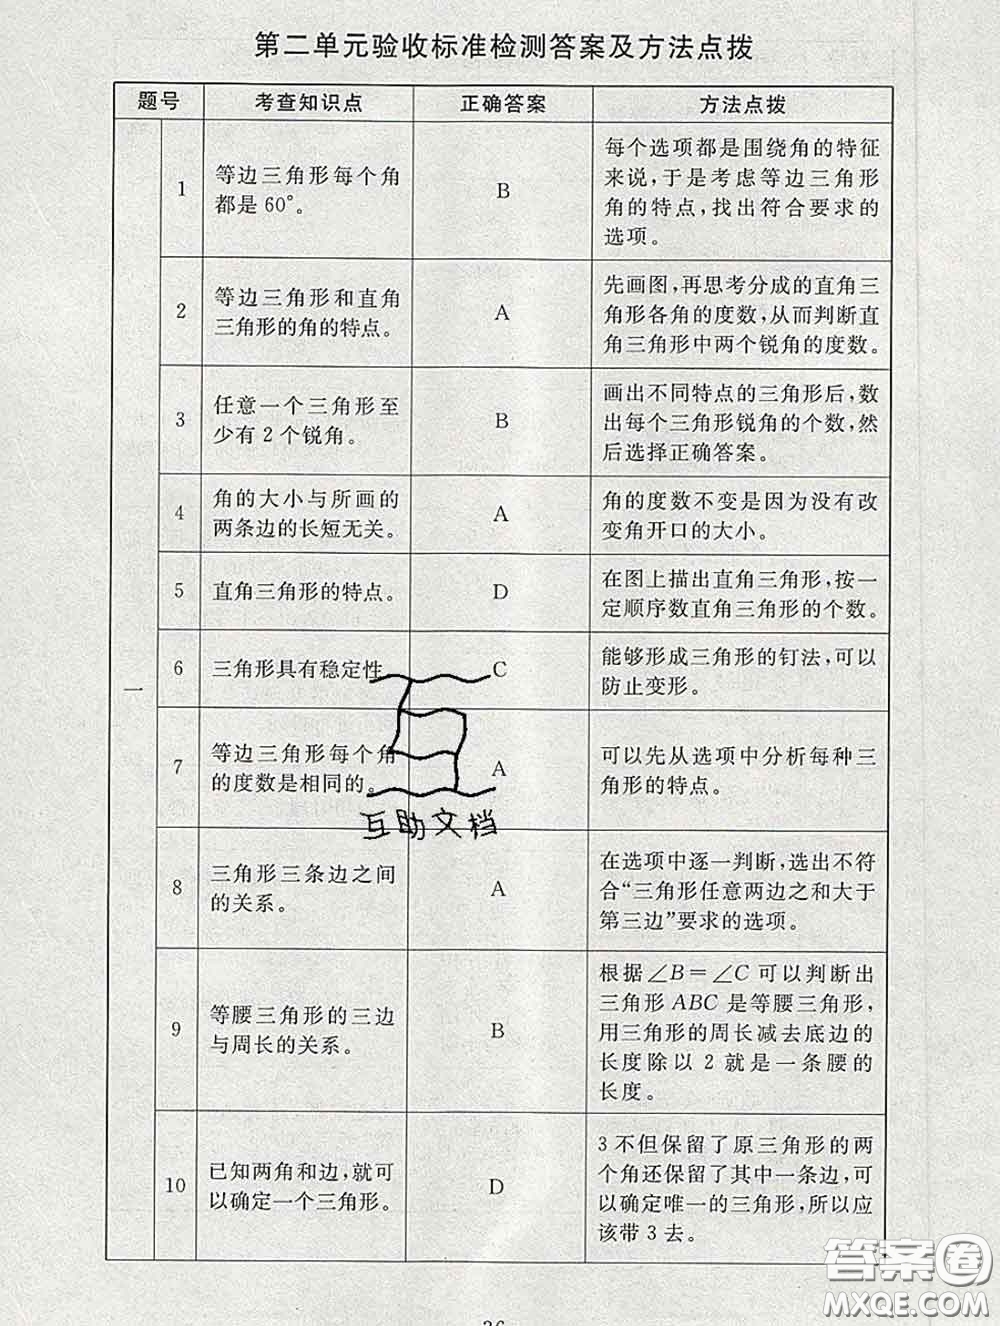 第二单元验收标准检测答案及方法点拨
题号 考查知识点 正确答案 方法点拨
一
1
等边三角形每个角
都是 60°。
B
每个选项都是围绕角的特征
来说，于是考虑等边三角形
角的特点，找出符合要求的
选项。
2
等边三角形和直角
三角形的角的特点。
A
先画图，再思考分成的直角三
角形各角的度数，从而判断直
角三角形中两个锐角的度数。
3
任意一个三角形至
少有 2 个锐角。
B
画出不同特点的三角形后，数
出每个三角形锐角的个数，然
后选择正确答案。
4
角的大小与所画的
两条边的长短无关。
A
角的度数不变是因为没有改
变角开口的大小。
5
直角三角形的特点。
D
在图上描出直角三角形，按一
定顺序数直角三角形的个数。
6
三角形具有稳定性
C
能够形成三角形的钉法，可以
防止变形。
7
等边三角形每个角
的度数是相同的。
A
可以先从选项中分析每种三
角形的特点。
互助文档
8
三角形三条边之间
的关系。
A
在选项中逐一判断，选出不符
合“三角形任意两边之和大于
第三边”要求的选项。
9
等腰三角形的三边
与周长的关系。
B
根据∠B＝∠C 可以判断出
三角形 ABC 是等腰三角形，
用三角形的周长减去底边的
长度除以 2 就是一条腰的
长度。
10
已知两角和边，就可
以确定一个三角形。
D
3 不但保留了原三角形的两
个角还保留了其中一条边，可
以确定唯一的三角形，所以应
该带 3 去。
答案圈
MXQE.COM
36